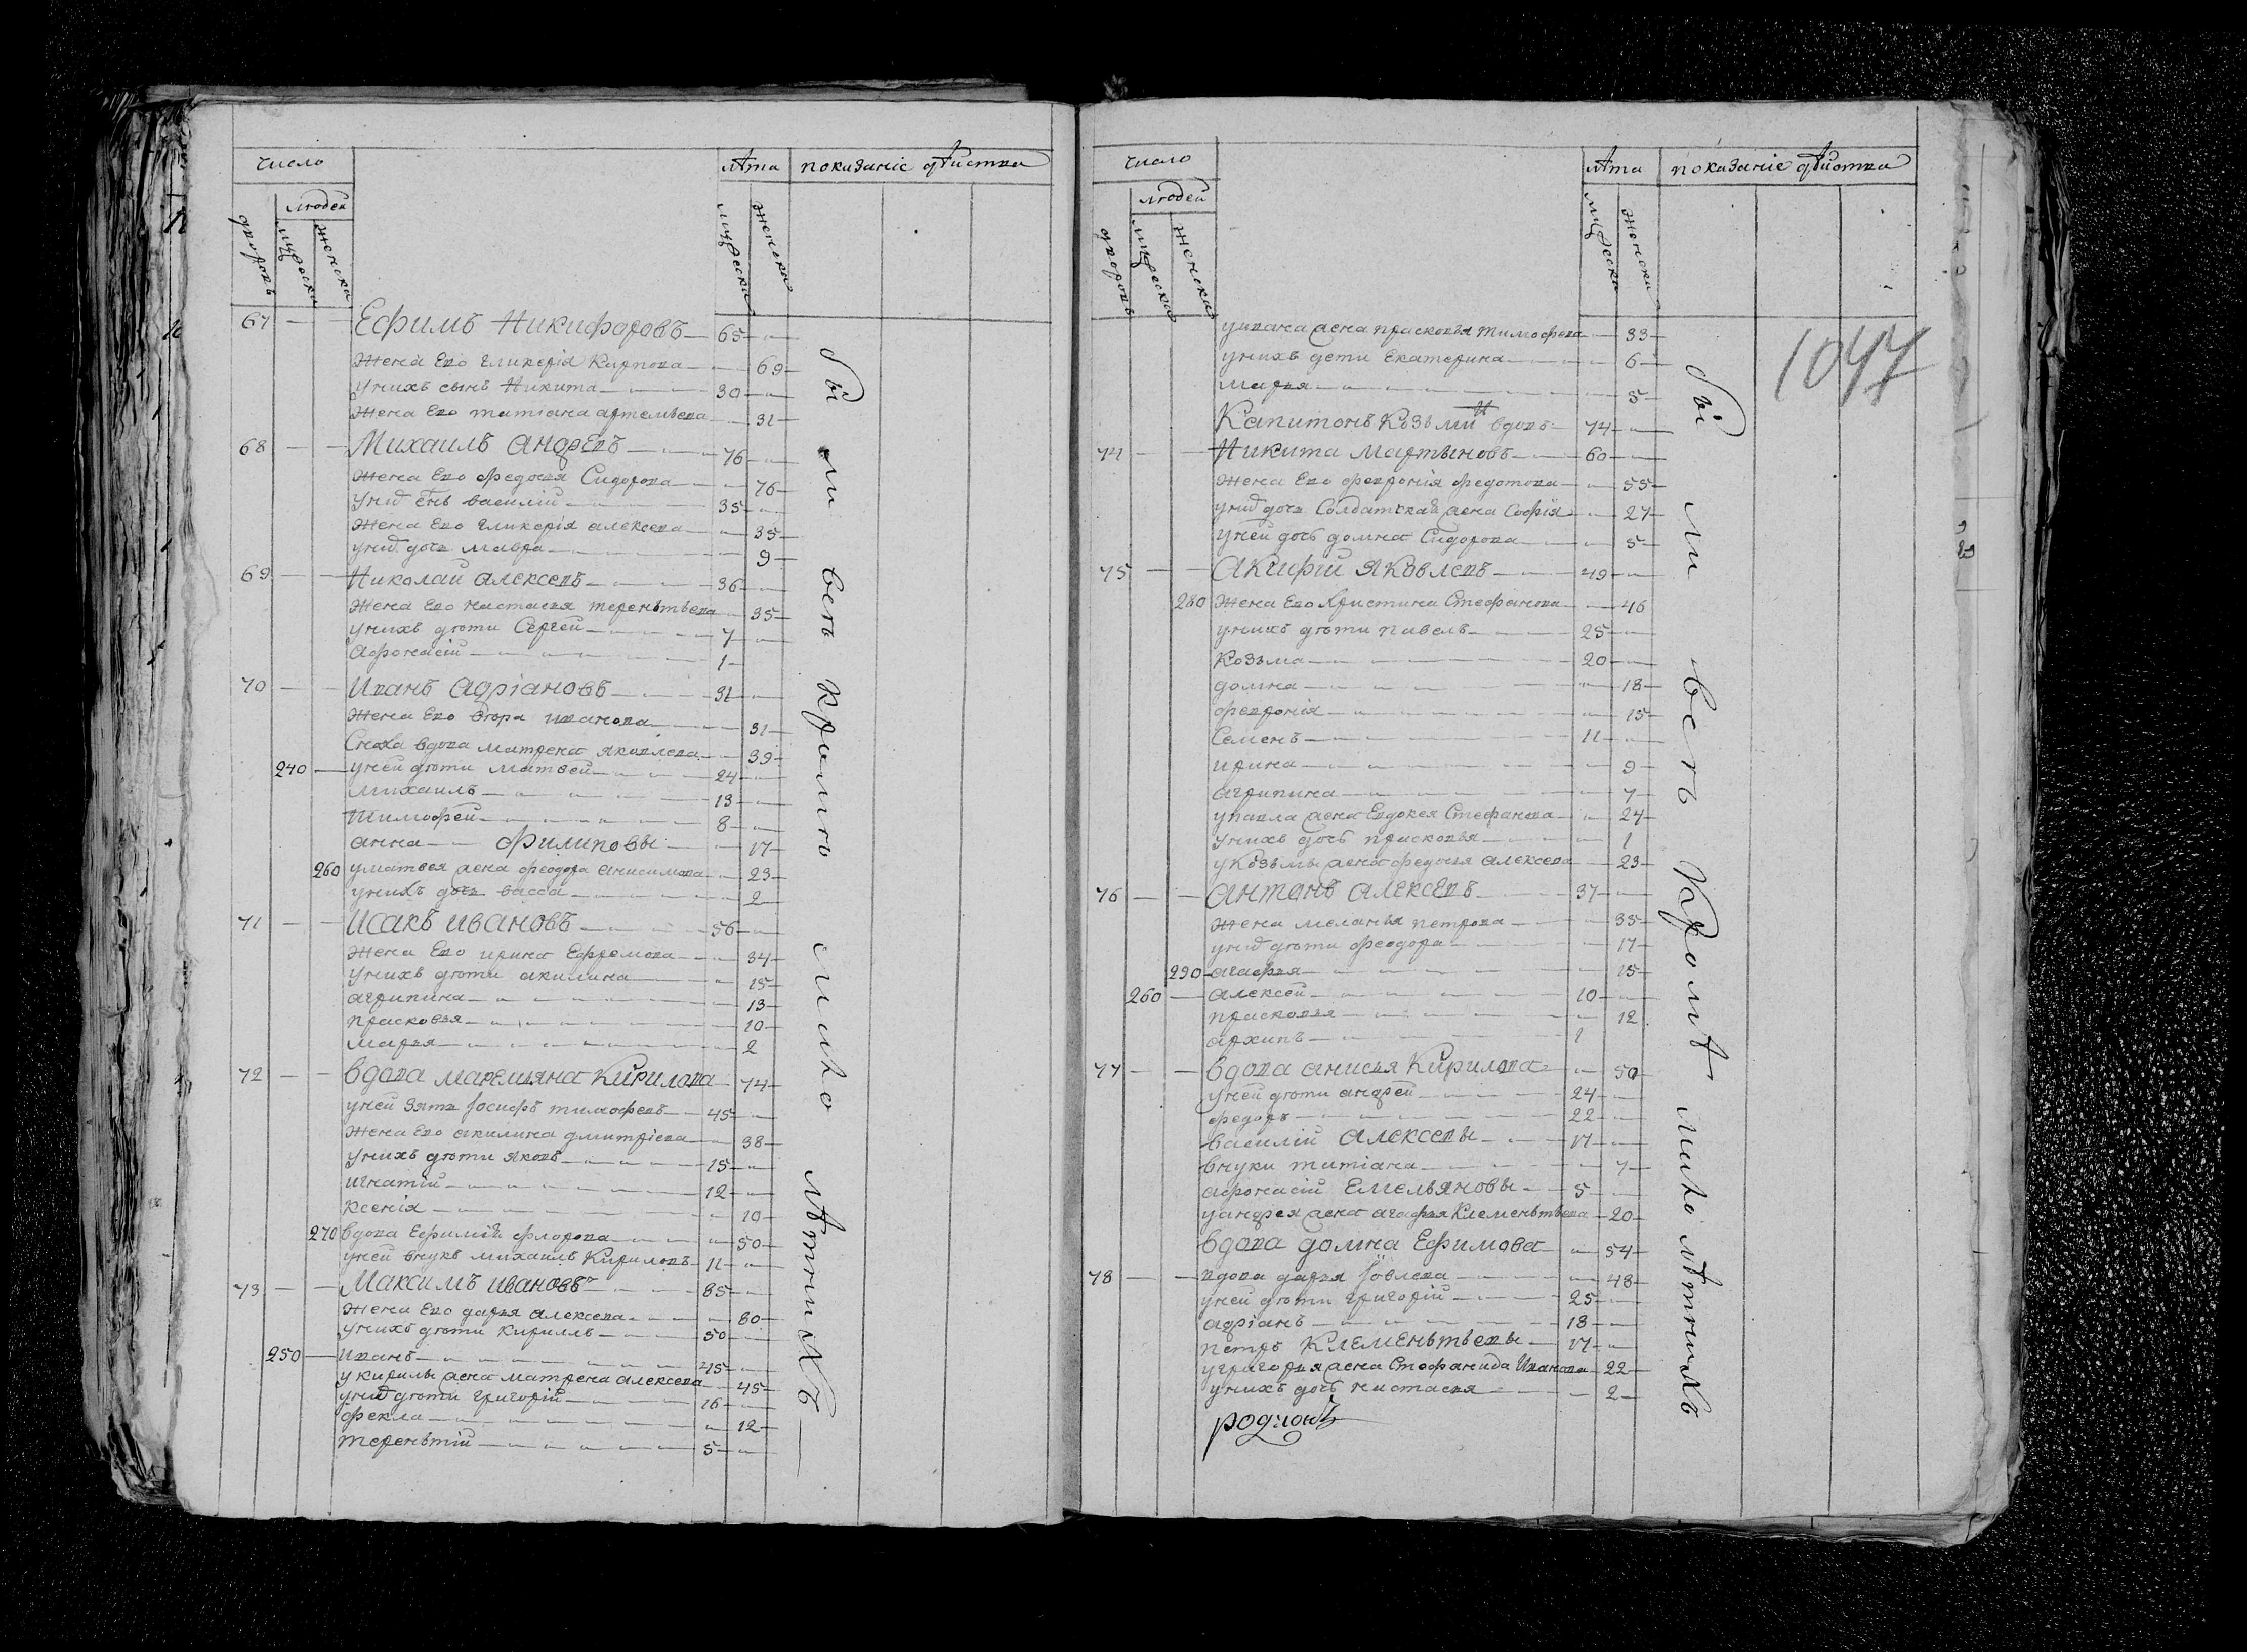 число
людей
дворовъ
мужеска
женска
лѣта
мужеска
женска
показаніе дѣйства
67 Ефимъ Никифоровъ 65
Жена Ево гликерія Карпова 69
Унихъ сынъ Никита 30
Жена Ево татіана артемьева 31
68 Михаилъ андреевъ 76
Жена Ево федосья Сидорова 76
василій 35
Жена Ево гликерія алексеева 35
дочь мавра 9
69 Николай алексеевъ 36
Жена Ево настасья терентьева 35
унихъ дѣти Сергей 7
Афонасій 1
70 Иванъ адріановъ 31
Жена Ево иванова 31
Сноха вдова матрена яковлева 39
240 уней дѣти матвей 24
михаилъ 13
тимофей 8
анна филиповы 17
260 уматвея жена феодора анисимова 23
унихъ дочь васса 2
71 Исакъ ивановъ 56
Жена Ево ирина Ефремова 34
Унихъ дѣти акилина 15
агрипина 13
прасковья 10
марья 2
72 вдова маремьяна Кирилова 74
уней зять Іосифъ тимофеевъ 45
Жена Ево акилина дмитріева 38
унихъ дѣти яковъ 15
игнатій 12
ксенія 10
270 вдова Ефимія флорова 50
уней внукъ михаилъ Кириловъ 11
73 Максимъ ивановъ 85
Жена Ево дарья алексеева 80
Унихъ дѣти кирилъ 50
250 иванъ 45
укирилы жена матрена алексеева 45
дѣти григорій 16
фекла 12
терентій 5
были всеъ Кромѣ мало лѣтнихъ
число
людей
дворовъ
мужеска
женска
лѣта
мужеска
женска
показаніе дѣйства
1047
уивана жена прасковья тимофеева 33
унихъ дети Екатерина 6
марья 5
Капитонъ Козьминъ вдовъ 74
74 Никита мартыновъ 60
Жена Ево феврония федотова 55
дочь Солдатская жена Софія 27
уней дочь домна Сидорова 5
75 акифій яковлевъ 49
280 Жена Ево Христина Стефанова 46
унихъ дѣти павелъ 25
козьма 20
домна 18
февронія 15
Семенъ 11
ирина 9
агрипина 7
упавла жена Евдокея Стефанова 24
унихъ дочь прасковья 1
укозьмы жена федосья алексеева 23
76 антонъ алексеевъ 37
Жена меланья петрова 35
дѣти феодора 17
290 агафья 15
260 алексей 10
прасковья 12
архипъ 1
77 вдова анисья Кирилова 50
уней дѣти андрей 24
федоръ 22
василій алексеевы 17
внуки татіана 7
афонасій Емельяновы 5
уандрея жена агафья Клементьева 20
вдова домна Ефимова 54
78 вдова дарья Іовлева 48
уней дѣти григорій 25
адріанъ 18
петръ Клементьевы 17
уграгорья жена Стефанида Иванова 22
унихъ дочь настасья 2
родионъ
были всеъ Кромѣ мало лѣтнихъ